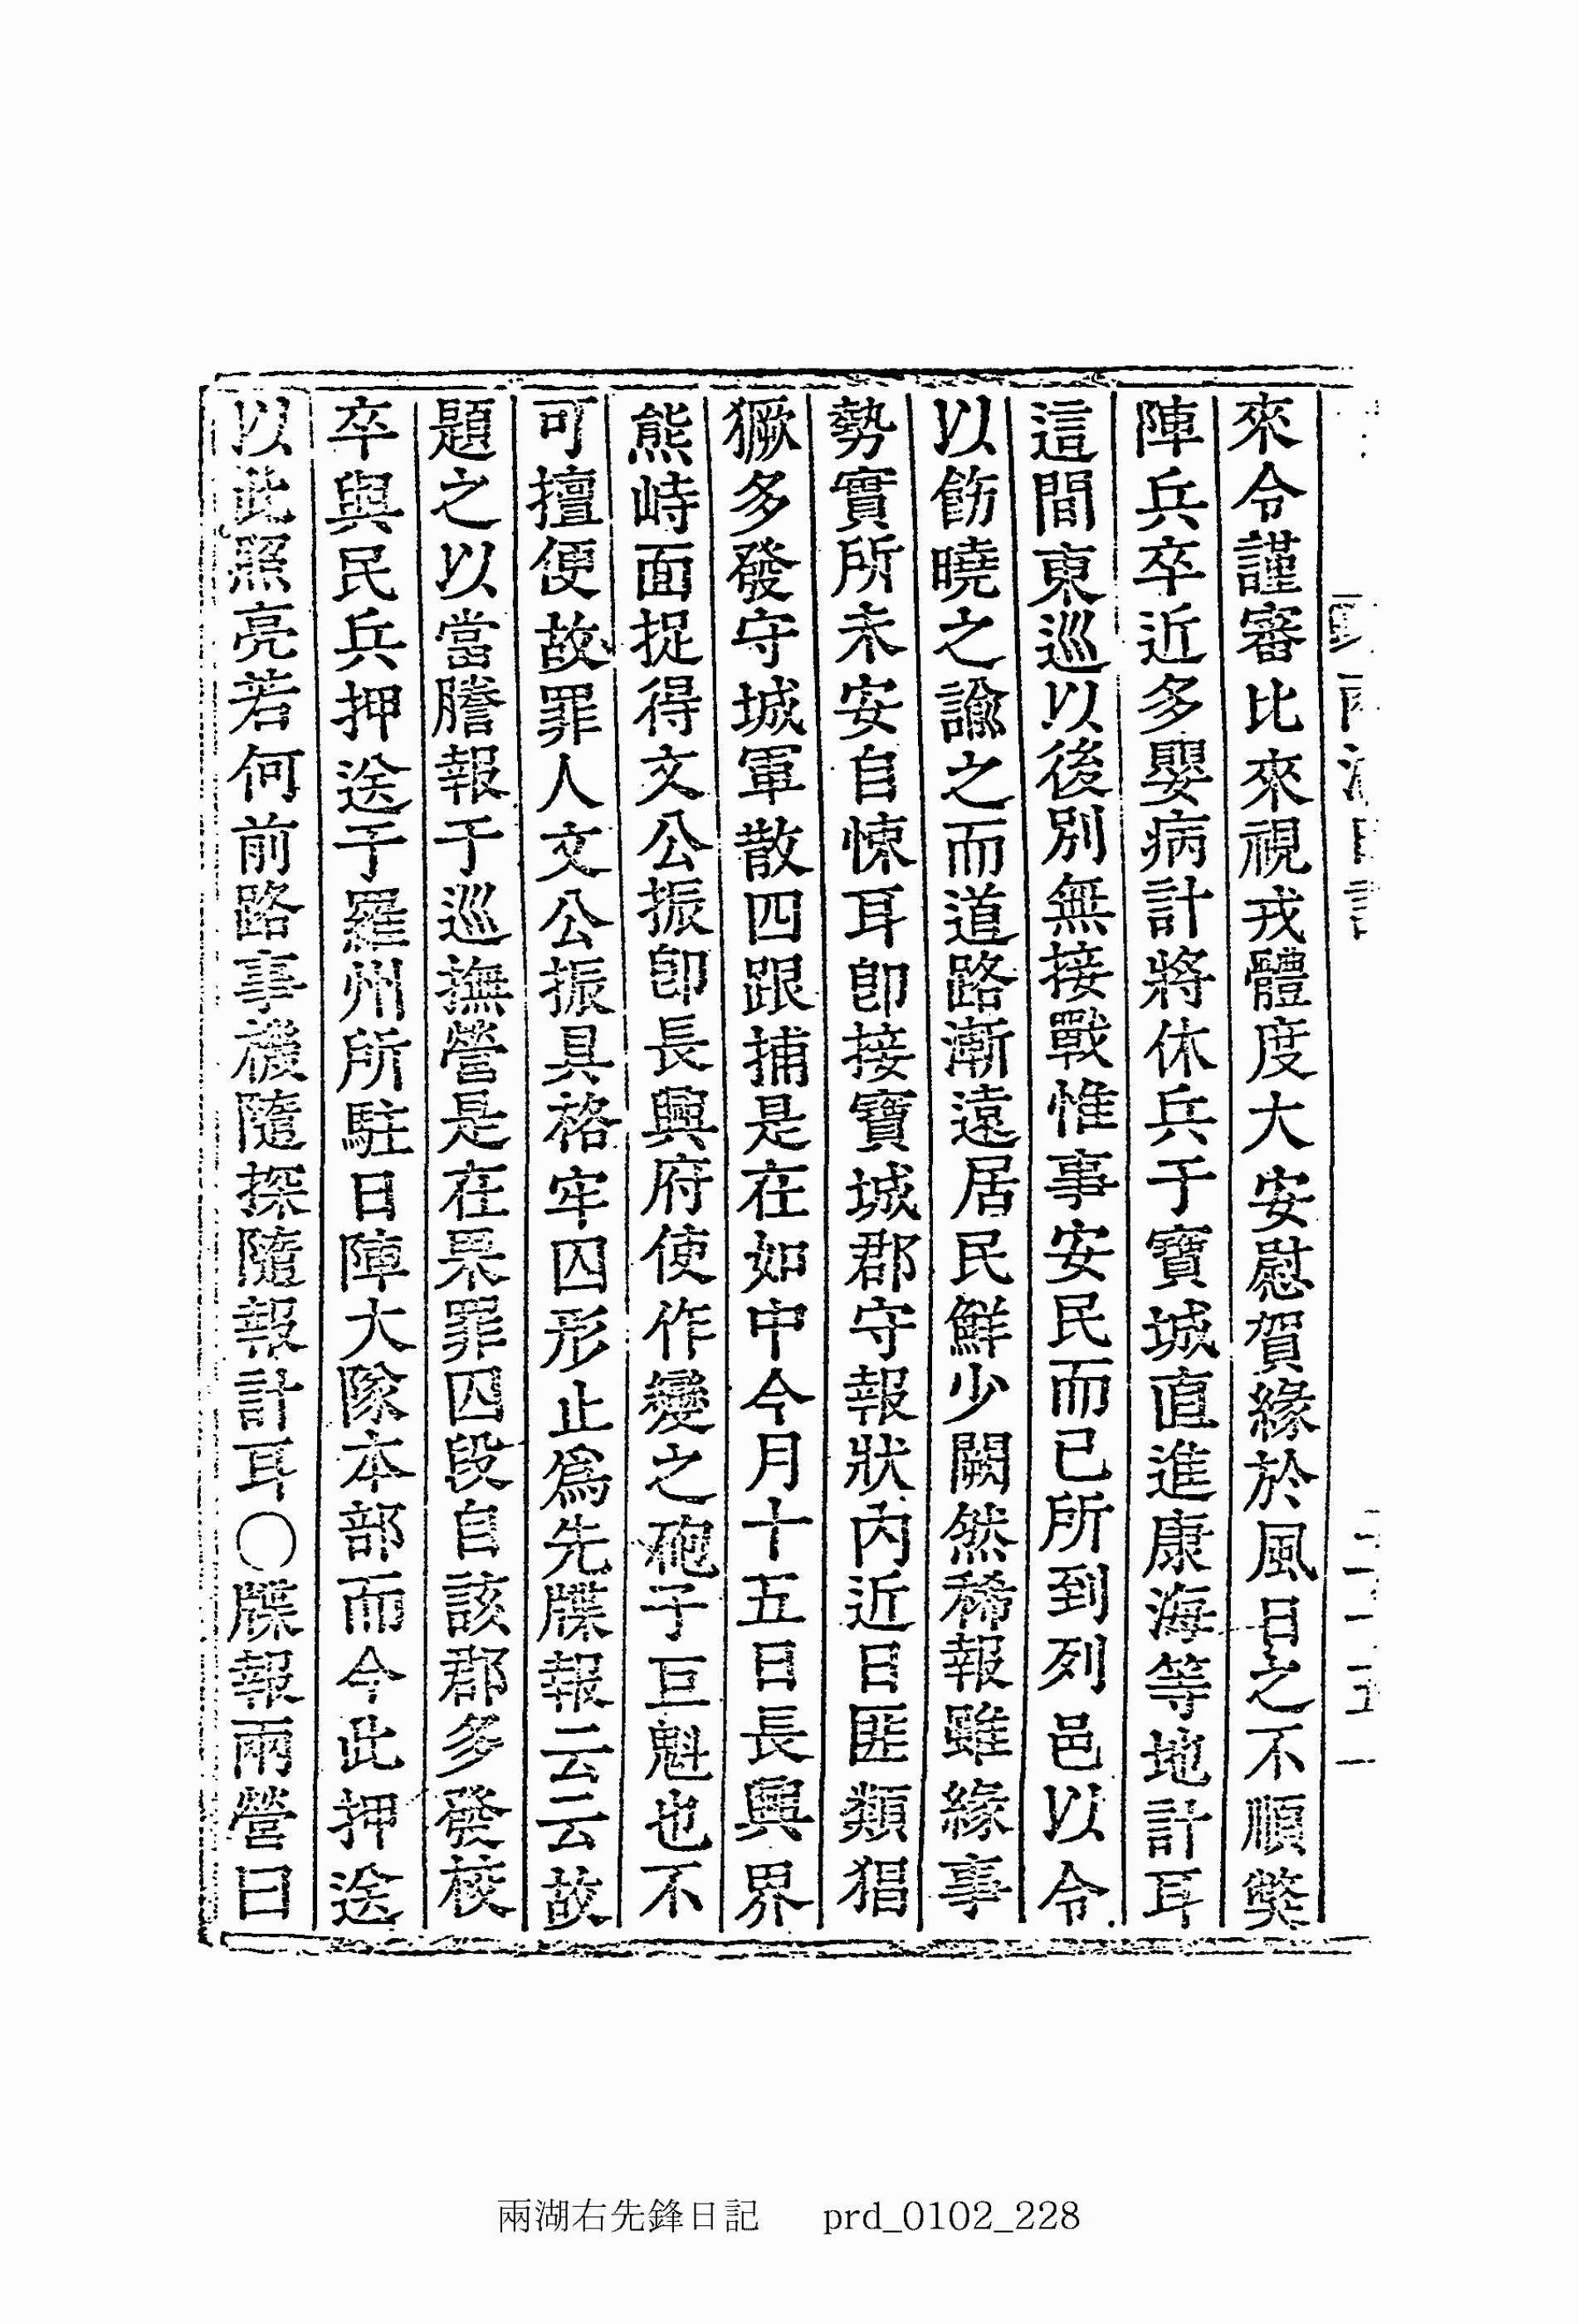 來令謹審比來視戎體度大安慰賀緣於風日之不順弊
陣兵卒近多嬰病計將休兵于寶城直進康海等地計耳
這間東巡以後別無接戰惟事安民而已所到列邑以令
以飭曉之諭之而道路漸遠居民鮮少闕然稀報雖緣事
勢實所未安自悚耳卽接寶城郡守報狀內近日匪類猖
獗多發守城軍散四跟捕是在如中今月十五日長興界
熊峙面捉得文公振卽長興府使作變之砲子巨魁也不
可擅便故罪人文公振具格牢囚形止爲先牒報云云故
題之以當謄報于巡撫營是在果罪囚段自該郡多發校
卒與民兵押送于羅州所駐日陣大隊本部而今此押送
以此照亮若何前路事機隨探隨報計耳〇牒報兩營曰
兩湖右先鋒日記 prd_0102_228